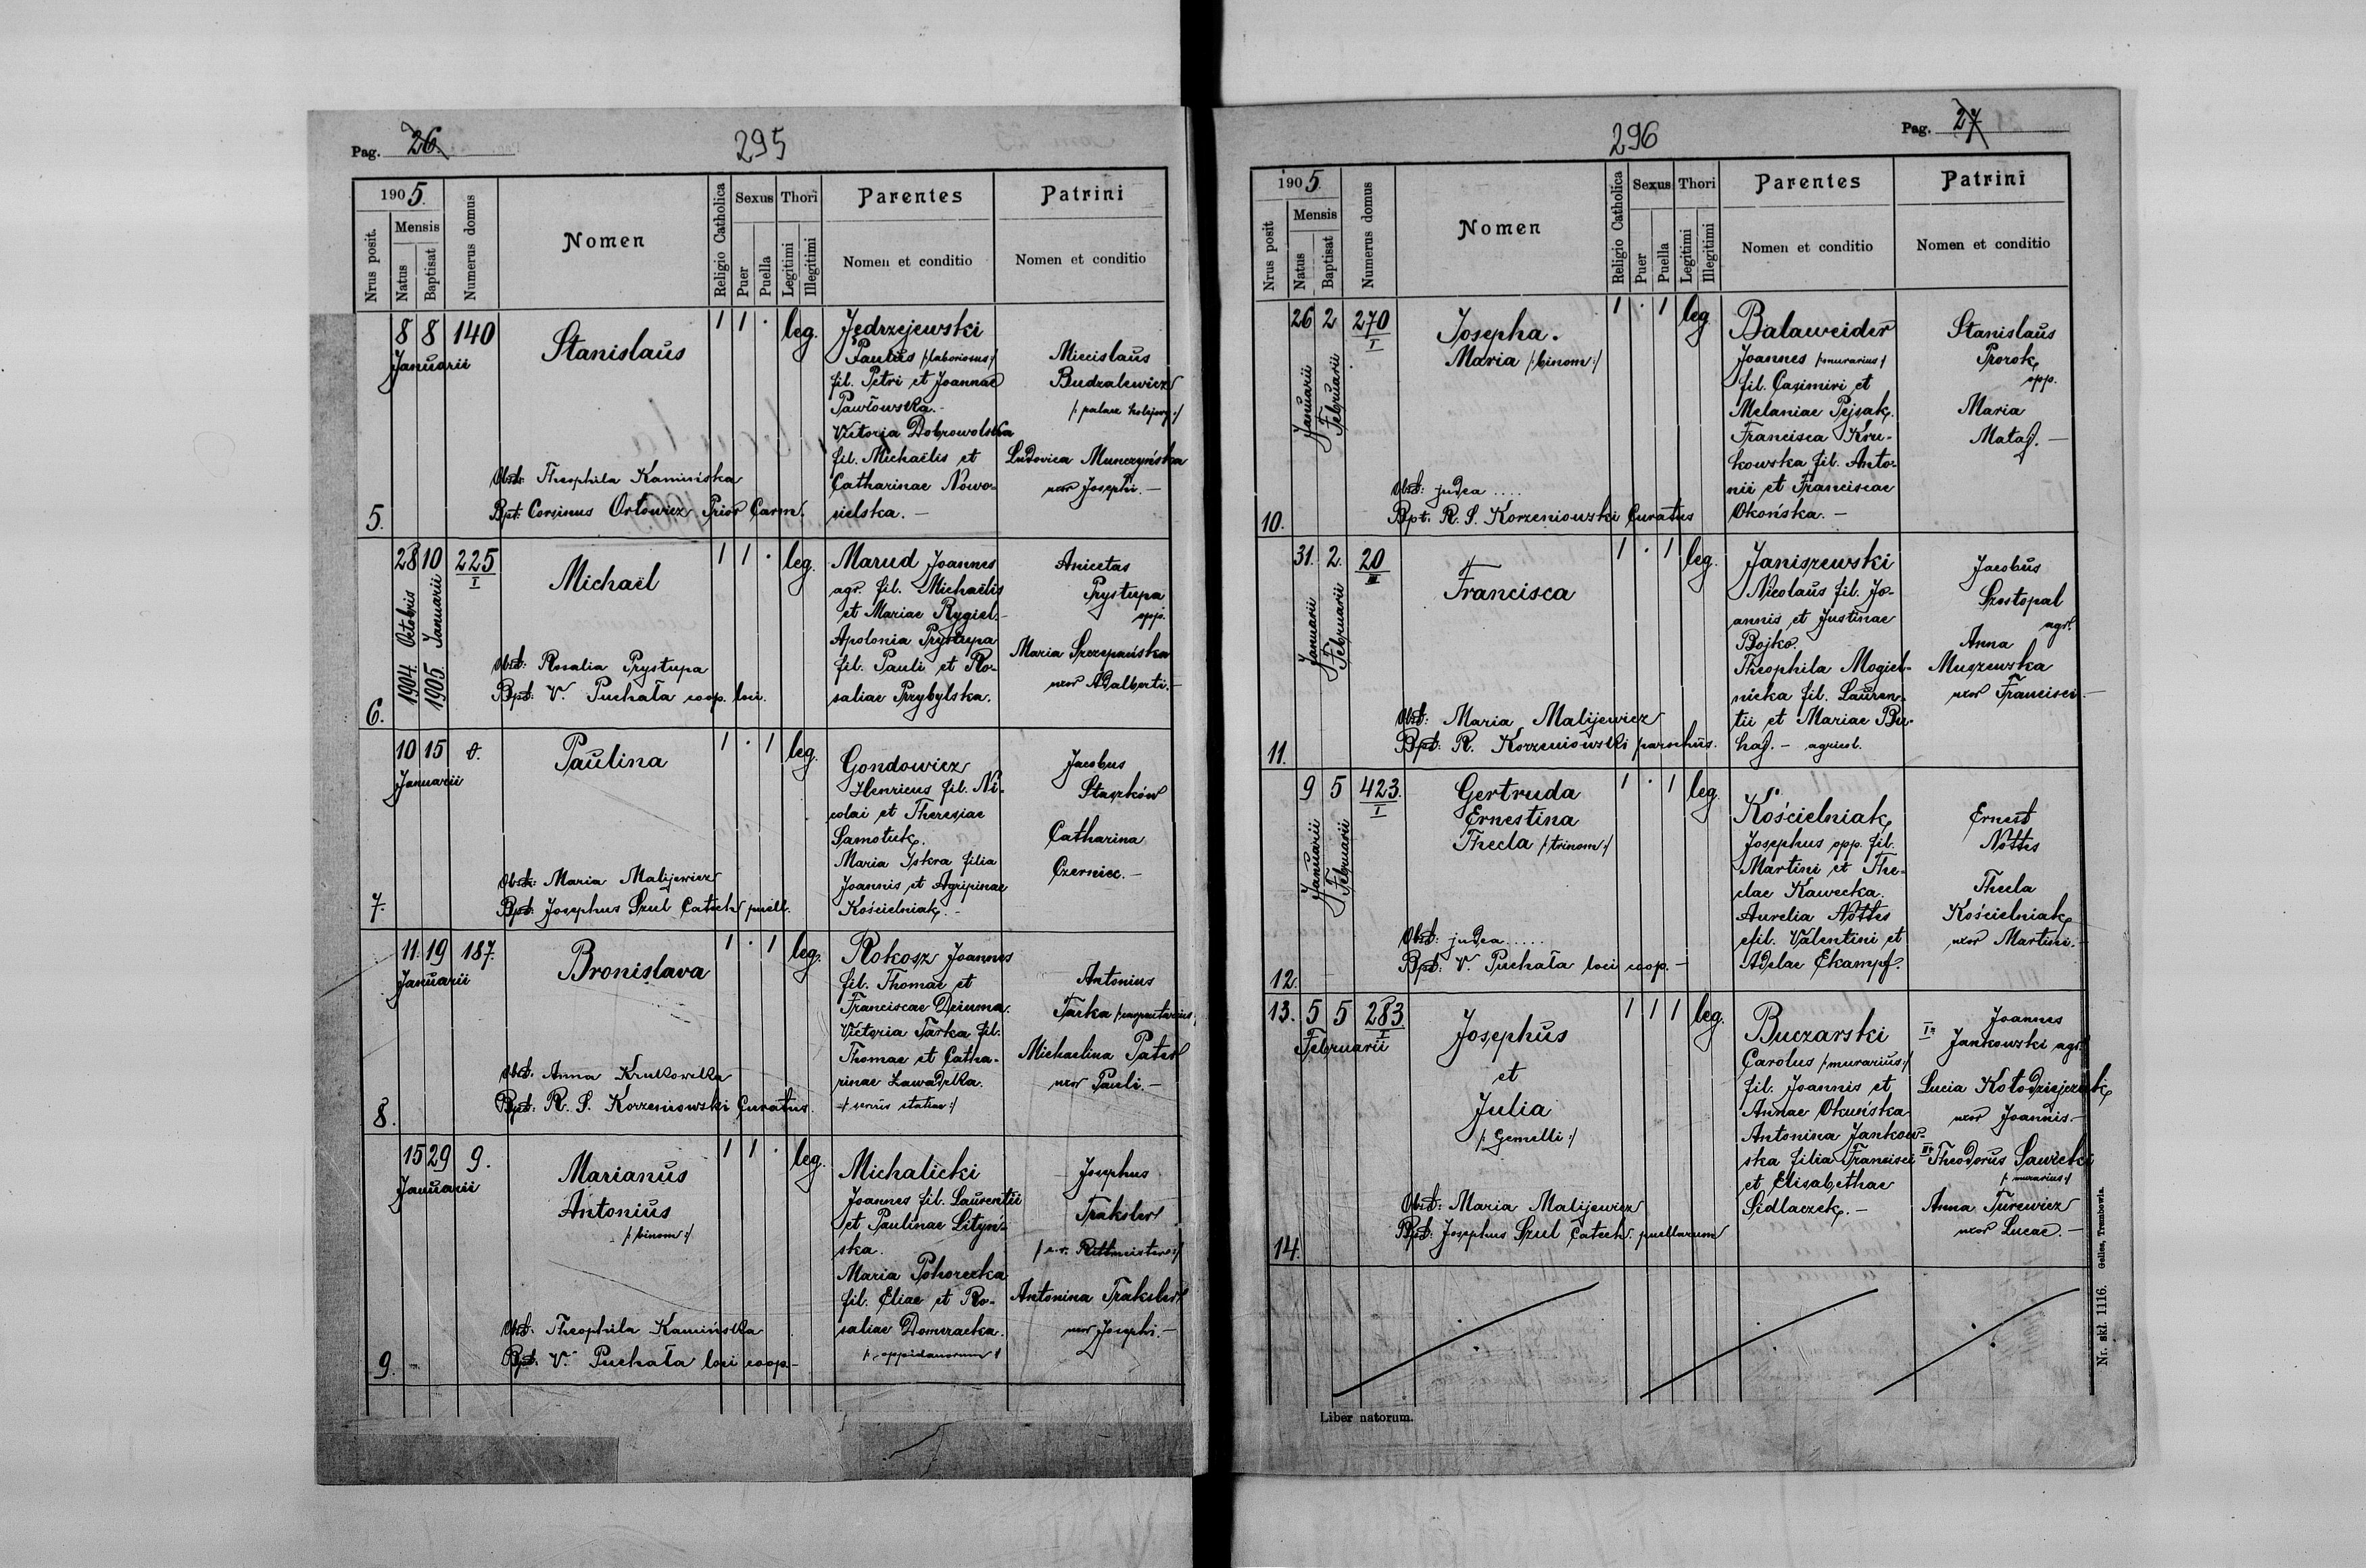 Pag. 26.
295
1905.
Nrus posit.
Mensis
Natus
Baptisat
Numerus domus
Nomen
Religio Catholica
Sexus
Puer
Puella
Thori
Legitimi
Illegitimi
Parentes
Nomen et conditio
Patrini
Nomen et conditio
5.
8 8 140
Januarii
Stanislaus
1 1 · leg.
Jędrzejewski
Paulus /:laboriosus:/
fil. Petri et Joannae
Pawłowska.-
Victoria Dobrowolska
fil. Michaëlis et
Catharinae Nowo-
sielska.-
Miecislaus
Budzalewicz
Ludovica Munczyńska
uxor Josephi.-
Obst: Theophila Kamińska
Bpt: Corsinus Orłowicz Prior Carm.
6.
28 10 225
I
1904. Octobris
1905. Januarii
Michaël
1 1 · leg.
Marud Joannes
agr. fil. Michaëlis
et Mariae Rygiel.-
Apolonia Prystupa
fil. Pauli et Ro-
saliae Przybylska.
Anicetas
Prystupa
opp.
Maria Szczepańska
uxor Adalberti.-
Obst: Rosalia Prystupa
Bpt: V. Puchała coop. loci.
7.
10 15
Januarii
Paulina
1 · 1 leg.
Gondowicz
Henricus fil. Ni-
colai et Theresiae
Samotuk.
Maria Iskra filia
Joannis et Agripinae
Kościelniak.-
Jacobus
Staszków
Catharina
Czerniec.-
Obst: Maria Malijewicz
Bpt: Josephus Szul Catech. puell.
8.
11. 19 187.
Januarii
Bronislava
1 · 1 leg.
Rokosz Joannes
fil. Thomae et
Franciscae Dziuma.
Victoria Tarka fil.
Thomae et Catha-
rinae Zawadzka.
Antonius
Tarka
Michaelina Pater
uxor Pauli.-
Obst. Anna Krukowska
Bpt: R. S. Korzeniowski Curatus.
9.
15 29 9.
Januarii
Marianus
Antonius
/:binom:/
1 1 · leg.
Michalicki
Joannes fil. Laurentii
et Paulinae Lityń-
ska.
Maria Pohorecka
fil. Eliae et Ro-
saliae Domeracka.
/:oppidanorum:/
Josephus
Traksler
Rittmeister:/
Antonina Traksler
uxor Josephi.-
Obst. Theophila Kamińska
Bpt. V. Puchała loci coop.-
296
Pag. 27
1905.
Nrus posit
Mensis
Natus
Baptisat
Numerus domus
Nomen
Religio Catholica
Sexus
Puer
Puella
Thori
Legitimi
Illegitimi
Parentes
Nomen et conditio
Patrini
Nomen et conditio
10.
26 2 270
I
Januarii
Februarii
Josepha.
Maria /:binom:/
1 · 1 leg.
Balaweider
Joannes /:murarius:/
fil. Casimiri et
Melaniae Pejsak.
Francisca Kru-
kowska fil. Anto-
nii et Franciscae
Okońska.-
Stanislaus
Prorok
opp.
Maria
Mataj.-
Obst: judea ....
Bpt. R. S. Korzeniowski Curatus
11.
31. 2. 20
III
Januarii
Februarii
Francisca
1 · 1 leg.
Janiszewski
Nicolaus fil. Jo-
annis et Justinae
Bojko.
Theophila Mogiel-
nicka fil. Lauren-
tii et Mariae Bu-
haj.- agricol.
Jacobus
Szostopal
agr.
Anna
Muszewska
uxor Francisci.-
Obst: Maria Malijewicz
Bpt: R. Korzeniowski parochus.
12.
9 5 423.
I
Januarii
Februarii
Gertruda
Ernestina
Thecla /:trinom:/
1 · 1 leg.
Kościelniak
Josephus opp. fil.
Martini et The-
clae Kawecka.
Aurelia Nottes
fil. Valentini et
Adelae Ekampf.
Ernest
Nottes
Thecla
Kościelniak
uxor Martini.-
Obst: judea.....
Bpt: V. Puchała loci coop.-
13. 5 5 283.
I
Februarii
Josephus
et
Julia
/:Gemelli:/
1 1 1 leg.
Buczarski
Carolus /:murarius:/
fil. Joannis et
Annae Okuńska
Antonina Jankow-
ska filia Francisci
et Elisabethae
Sidlaczek.-
I Joannes
Jankowski agr.
Lucia Kołodziejczuk
uxor Joannis.-
II Theodorus Sawicki
/:murarius:/
Anna Turewicz
uxor Lucae.-
Obst: Maria Malijewicz
Bpt: Josephus Szul Catech. puellarum
14.
Liber natorum.
Nr. skł. 1116. Gelles, Trembowla.